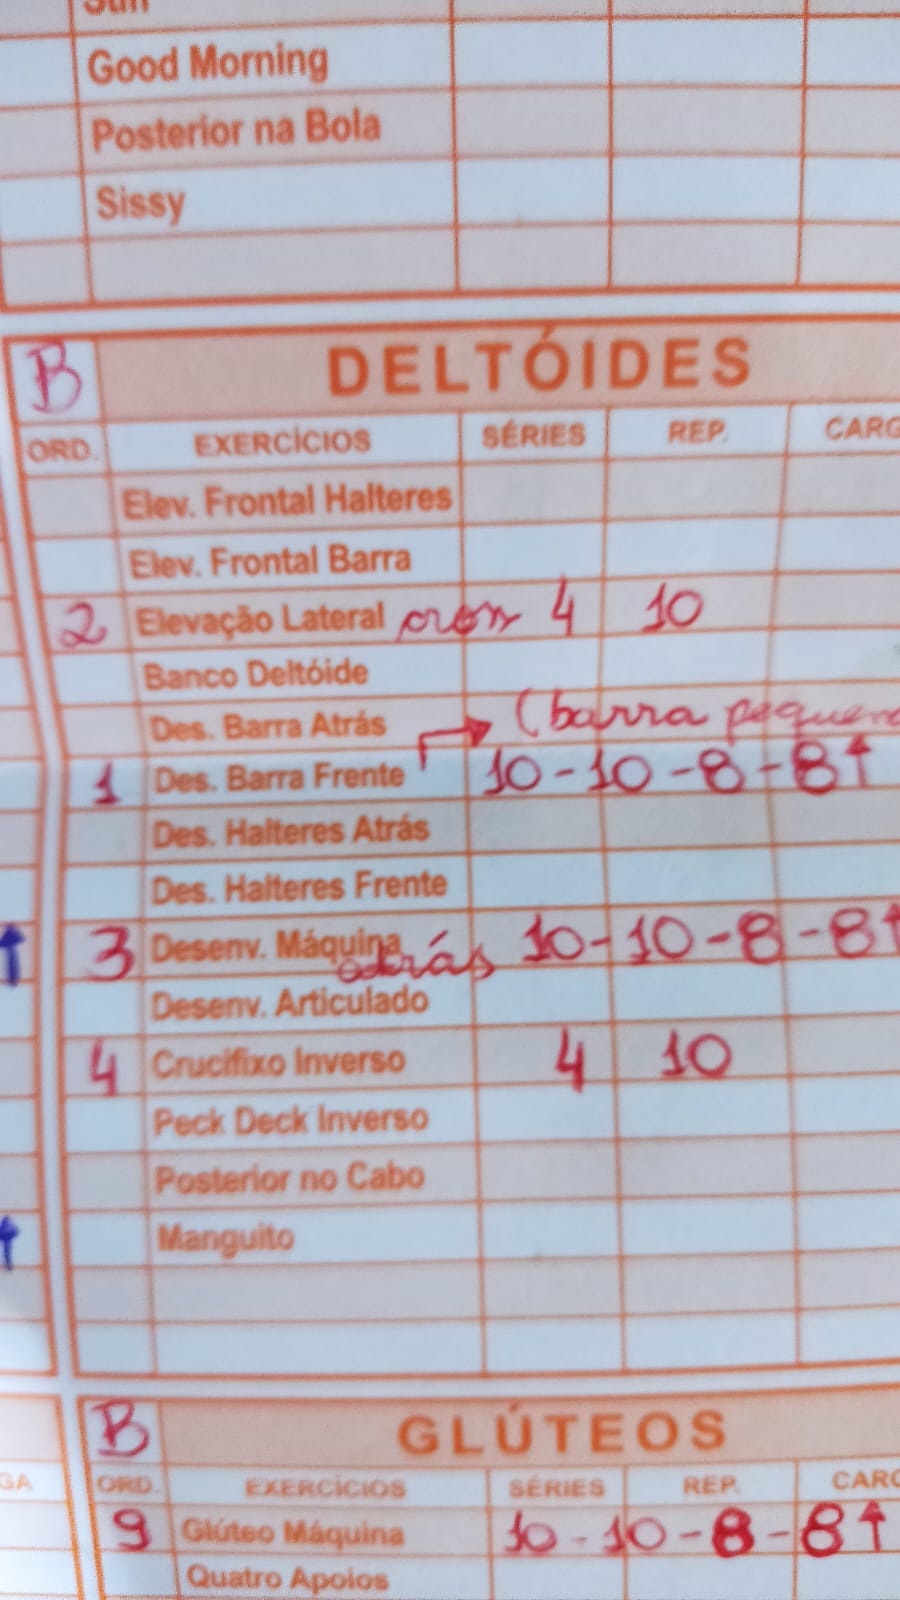 Good Morning
Posterior na Bola
Sissy
B DELTÓIDES
ORD. EXERCÍCIOS SÉRIES REP. CARG
Elev. Frontal Halteres
Elev. Frontal Barra
2 Elevação Lateral 4 10
Banco Deltóide
Des. Barra Atrás (barra pequena
1 Des. Barra Frente 10-10-8-8↑
Des. Halteres Atrás
Des. Halteres Frente
3 Desenv. Máquina atrás 10-10-8-8↑
Desenv. Articulado
4 Crucifixo Inverso 4 10
Peck Deck Inverso
Posterior no Cabo
Manguito
B GLÚTEOS
GA ORD. EXERCÍCIOS SÉRIES REP. CARG
9 Glúteo Máquina 10-10-8-8↑
Quatro Apoios